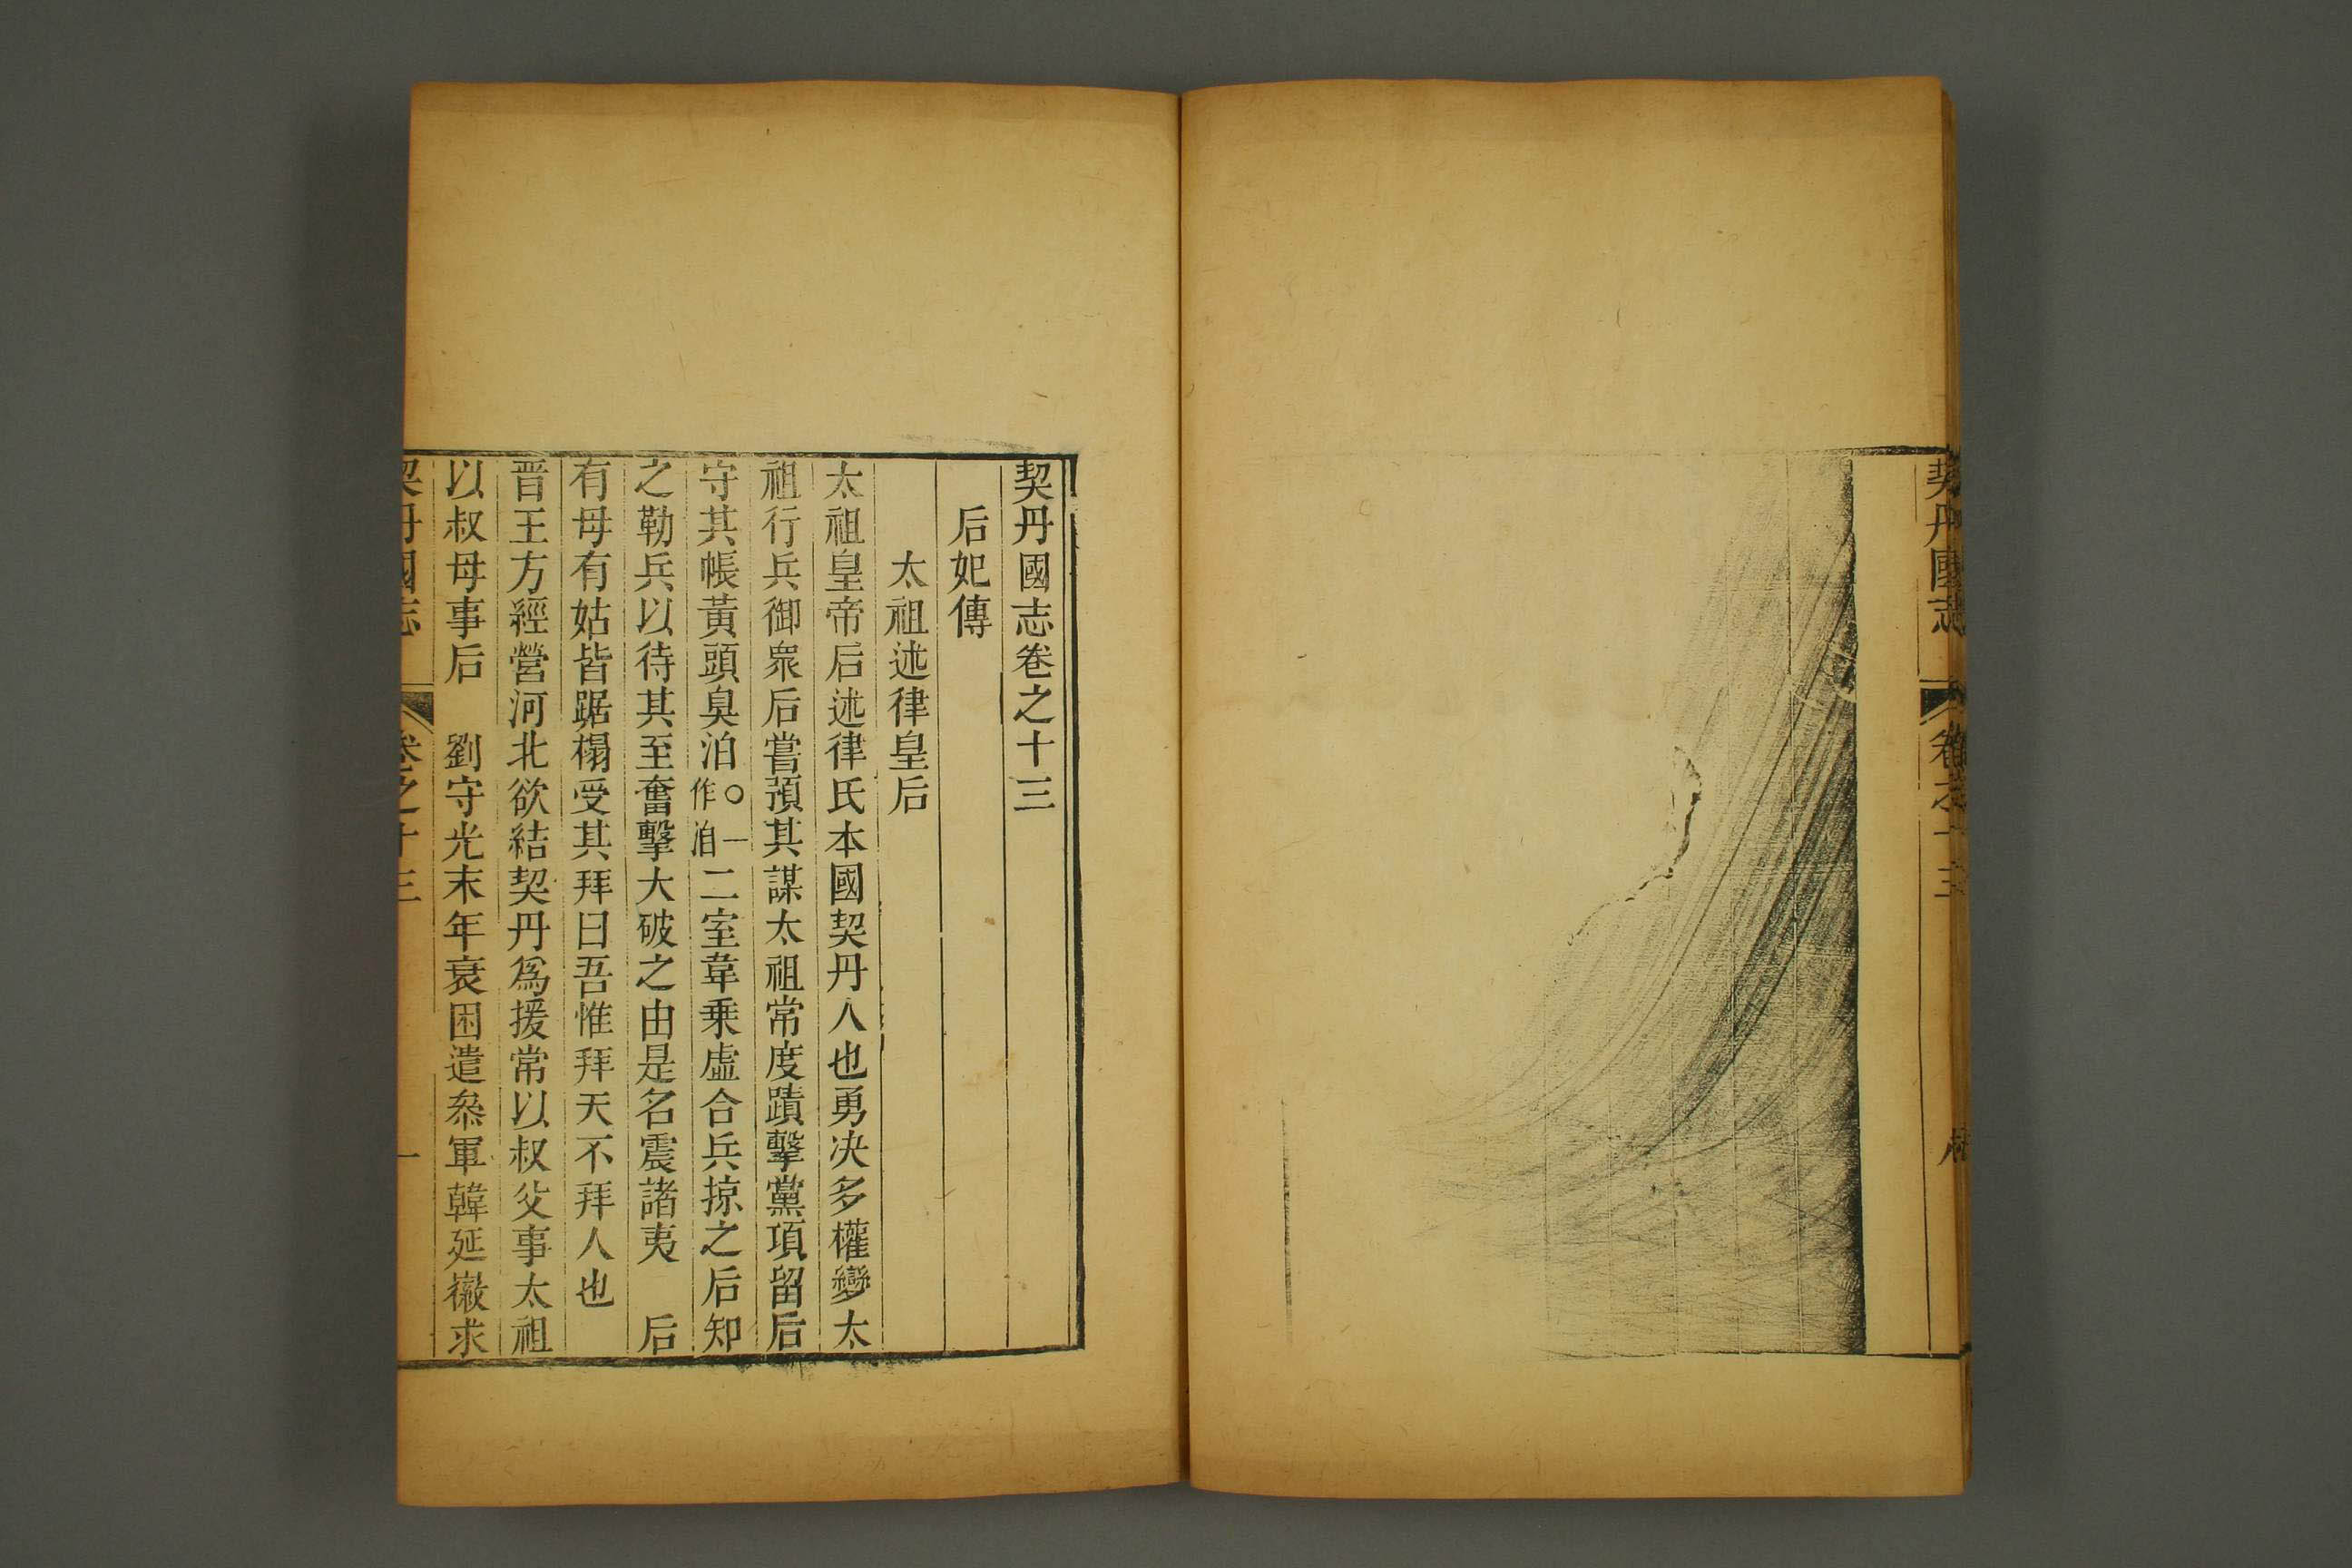 契丹國志 卷之十三
契丹國志卷之十三
后妃傳
太祖述律皇后
太祖皇帝后述律氏本國契丹人也勇决多權變太
祖行兵御衆后嘗預其謀太祖常度蹟擊黨項留后
守其帳黃頭臭泊○一作洎二室韋乗虛合兵掠之后知
之勒兵以待其至奮擊大破之由是名震諸夷　后
有母有姑皆踞榻受其拜曰吾惟拜天不拜人也
晉王方經營河北欲結契丹爲援常以叔父事太祖
以叔母事后　劉守光末年衰困遣叅軍韓延徽求
契丹國志 卷之十三 一